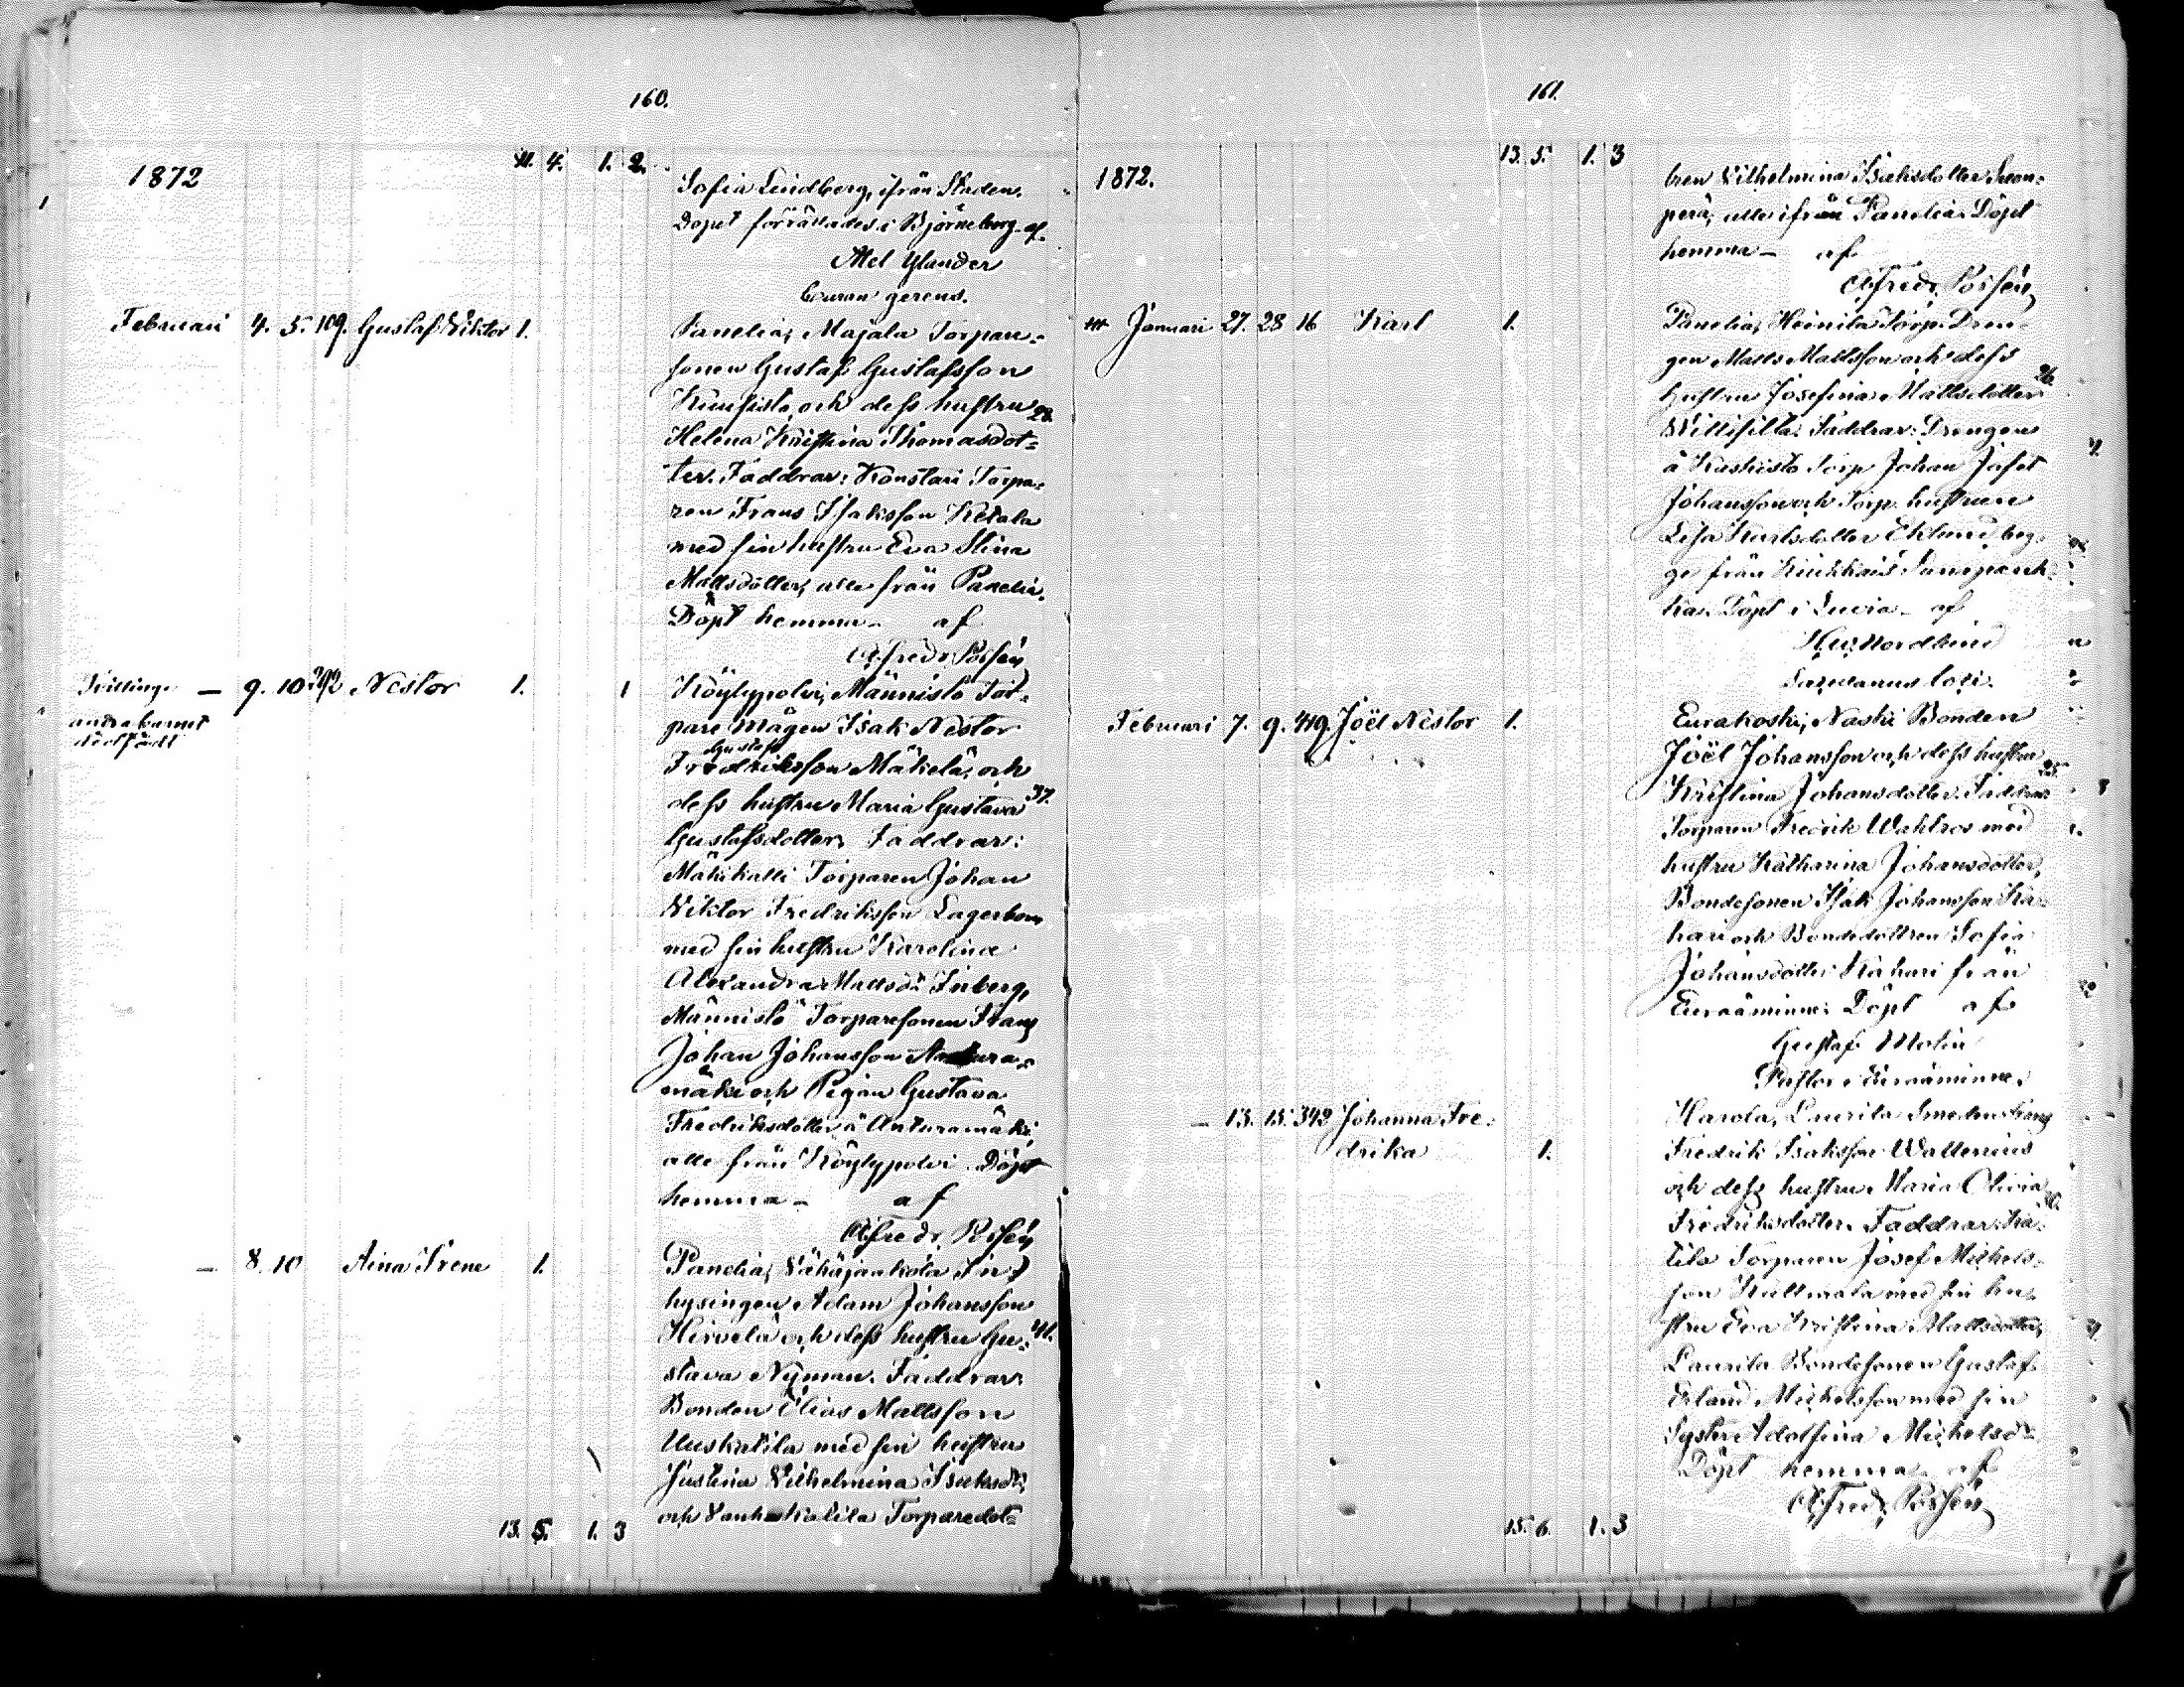 160.
1872
11. 4. 1. 2.
Sofia Lindberg, ifrån Staden.
Döpet förrättades i Björneborg af
Mel Ylander
gerens.
Februari 4. 5. 109. Gustaf Viktor 1.
Panelia, Majala Torpare-
sonen Gustaf Gustafsson
Kuusisto och dess hustru 28.
Helena Kristina Thomasdot-
ter. Faddrar: Konstari Torpa-
ren Frans Isaksson Ketala
med sin hustru Eva Stina
Mattsdotter, alla från Panelia.
Döpt hemma - af
Alfred Posse´n
Tvillinge
andra barnet
dödfödt
— 9. 10. 292 Nestor 1. 1
Köylypolvi, Männistö Tor-
pare Mågen Isak Nestor
Gustafs
Fredriksson Mäkelä, och
dess hustru Maria Gustava 37.
Gustafsdotter, Faddrar:
Mäkikalli Torparen Johan
Viktor Fredriksson Lagerbom
med sin hustru Karolina
Alexandra Mattsdr Inberg,
Männistö Torparesonen Frans
Johan Johansson Antura-
mäki och Pigan Gustava
Fredriksdotter å Anturamäki,
alla från Köylypolvi. Döpt
hemma - af
Alfredr. Possén
— 8. 10 Aina Irene 1.
Panelia, Vähäjaakola In-
hysingen Adam Johansson
Hirvelä och dess hustru Gu- 41.
stava Nyman. Faddrar:
Bonden Elias Mattsson
Uuskalila med sin hustru
Justina Vilhelmina Isaksdr,
och Vanhakalila Torparedot-
13. 5. 1. 3
161.
1872.
13. 5. 1. 3
tren Vilhelmina Isaksdotter
perä, alla ifrån Panelia. Döpt
hemma - af
Alfredr. Possén
Januari 27. 28 16 Karl 1.
Panelia, Heinila Torp. Dren-
gen Matts Mattsson och dess
hustru Josefina Mattsdotter 26.
Willisilla. Faddrar: Drengen
å Kaskisto Torp Johan Jafet
Johansson och Torp. hustrun
Lisa Karlsdotter Eklund beg-
ge från
ka. Döpt i Luvia - af
Nordlund
Sacellanus loci.
Februari 7. 9. 419. Joël Nestor 1.
Eurakoski, Naski Bonden
Joël Johansson och dess hustru 25.
Kristina Johansdotter. Faddrar
Torparen Fredrik Wahlros med
hustru Katharina Johansdotter,
Bondesonen Isak Johansson Ka-
hari och Bondedottren Sofia
Johansdotter Kahari från
Euraåminne. Döpt af
Gustaf Molin
Pastor i Euraåminne.
— 13. 15. 342 Johanna Fre-
drika 1.
Harola, Laurila
Fredrik Isaksson Wallenius
och dess hustru Maria Olivia
Fredriksdotter. Faddrar: Ka-
tila Torparen Josef Michels-
son Kullmala med sin hu-
stru Eva Kristina Mattsdotter,
Laurila Bondesonen Gustaf
Erland Michelsson med sin
Syster Adolfina Michelsd-
Döpt hemma af
Alfredr. Possén
15. 6. 1. 3